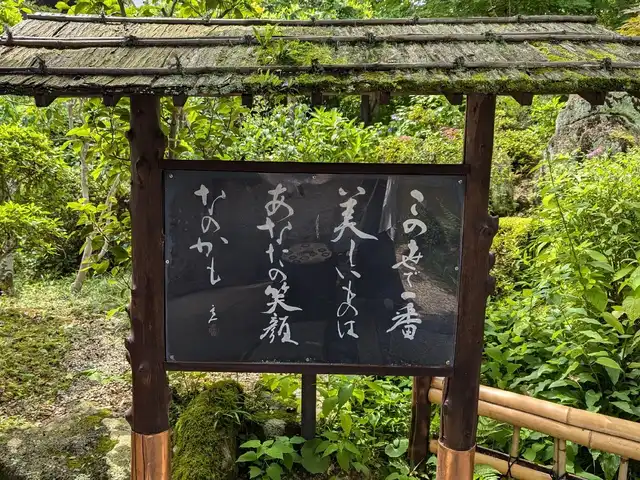 この世で一番
美しいものは
あなたの笑顔
なのかも